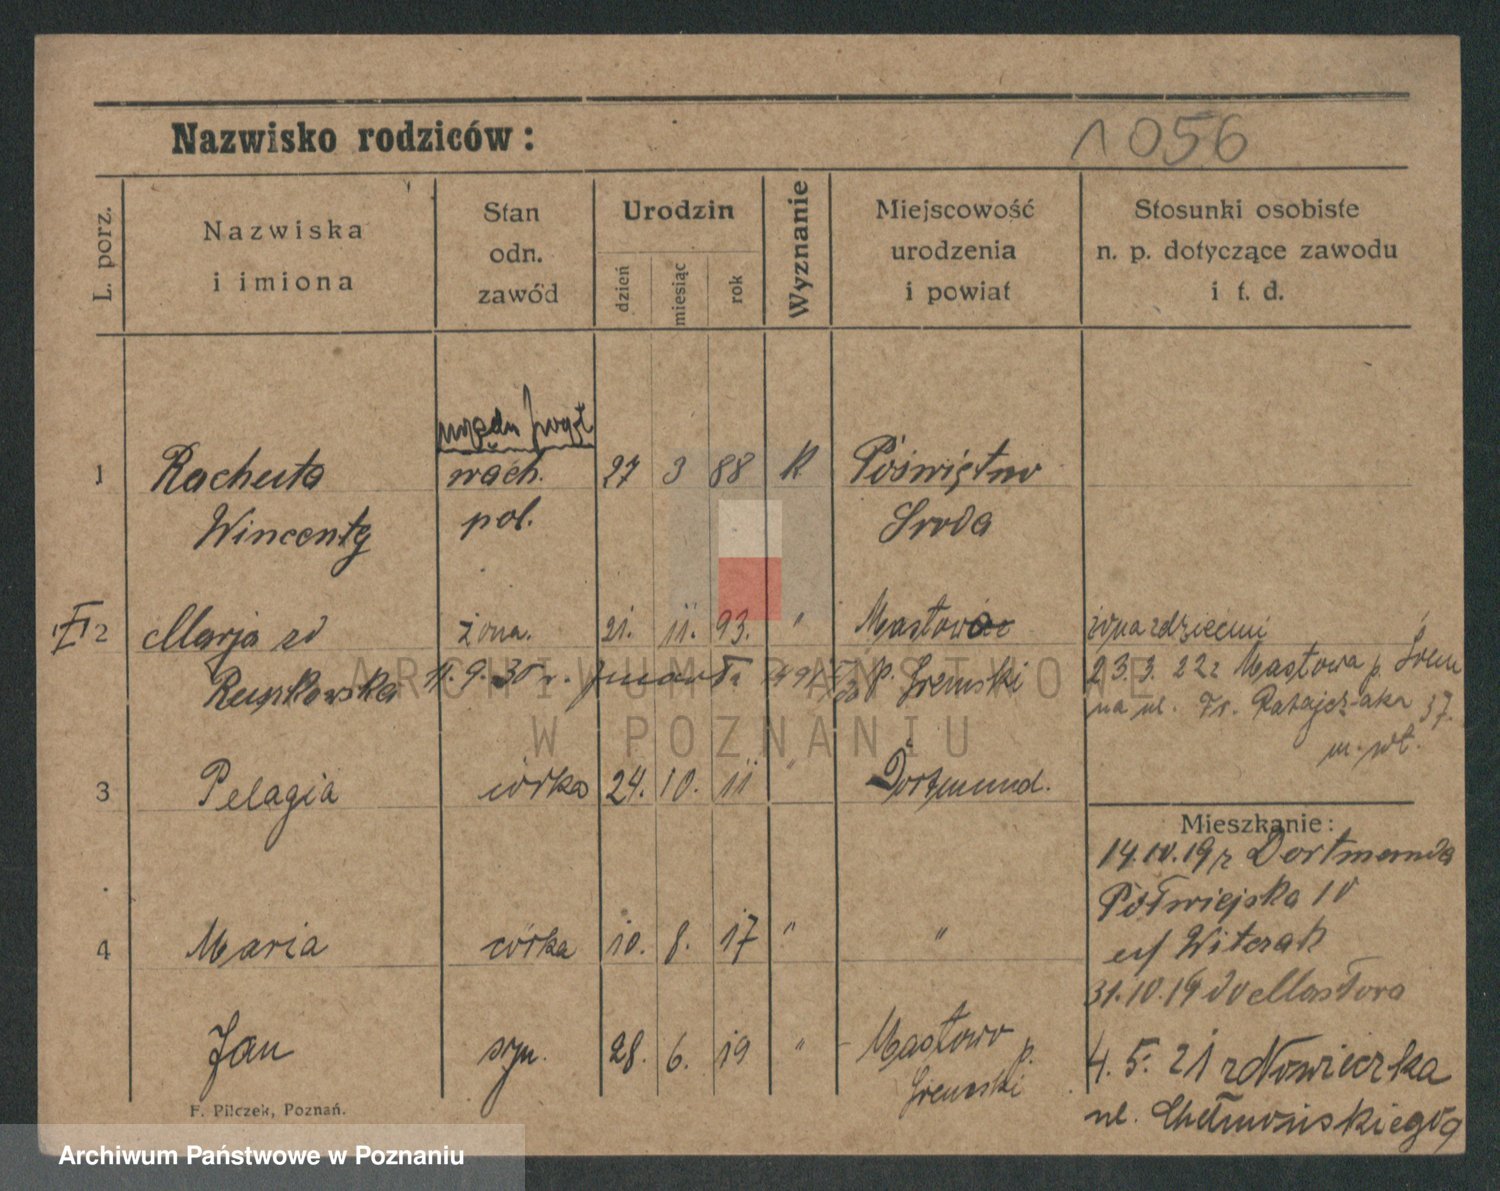 Nazwisko rodziców:
1056
L. porz.
Nazwiska
i imiona
Stan
odn.
zawód
Urodzin
dzień
miesiąc
rok
Wyznanie
Miejscowość
urodzenia
i powiat
Stosunki osobiste
n. p. dotyczące zawodu
i t. d.
1 Rachuta wach. 27 3 88 K Poświętno
Wincenty pol. Sroda
2 Marja zd żona. 21. 11. 93. " Mastowo
11.9.30 r. p. Śremski
żona z dziećmi
23.3.22 z Mastowa p. Śrem
na ul. Fr. Ratajczaka 37.
3 Pelagia córka 24. 10. 11 " Dortmund.
Mieszkanie:
14.10.19 z Dortmunda
Półwiejska 10
4 Maria córka 10. 8. 17 " "
Witczak
31.10.19 do Mastowa
Jan syn. 28. 6. 19 " Mastowo p.
Śremski
4. 5. 21 z Nowieczka
ul. Chełmońskiego 9
F. Pilczek, Poznań.
ARCHIWUM PAŃSTWOWE
W POZNANIU
Archiwum Państwowe w Poznaniu